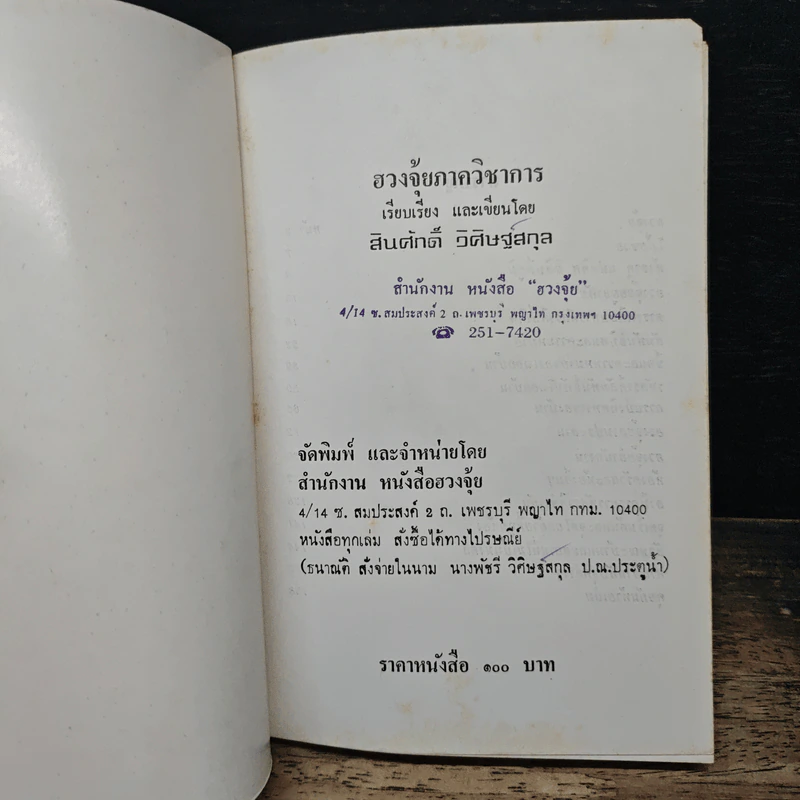 ฮวงจุ้ยภาควิชาการ
เรียบเรียง และเขียนโดย
สินศักดิ์ วิศิษฐ์สกุล
สำนักงาน หนังสือ "ฮวงจุ้ย"
4/14 ซ. สมประสงค์ 2 ถ. เพชรบุรี พญาไท กรุงเทพฯ 10400
☎ 251-7420
จัดพิมพ์ และจำหน่ายโดย
สำนักงาน หนังสือฮวงจุ้ย
4/14 ซ. สมประสงค์ 2 ถ. เพชรบุรี พญาไท กทม. 10400
หนังสือทุกเล่ม สั่งซื้อได้ทางไปรษณีย์
(ธนาณัติ สั่งจ่ายในนาม นางพัชรี วิศิษฐ์สกุล ป.ณ.ประตูน้ำ)
ราคาหนังสือ ๑๐๐ บาท